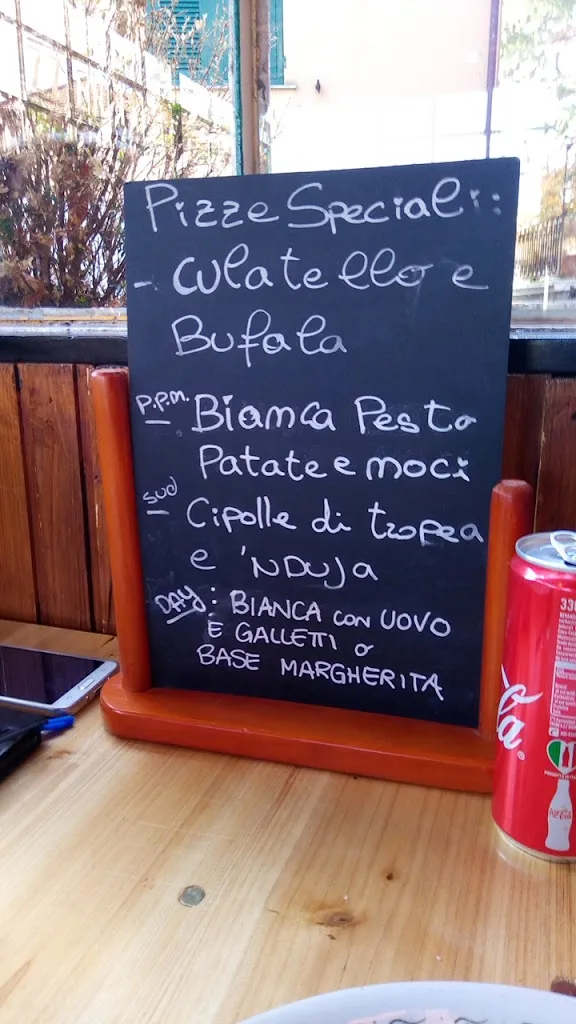 Pizze Speciali:
- culatello e
Bufala
P.P.M. - Bianca Pesto
Patate e moci
SUD - Cipolle di tropea
e 'NDUJA
DAY: BIANCA con UOVO
E GALLETTI o
BASE MARGHERITA
330
la
Coca-Cola